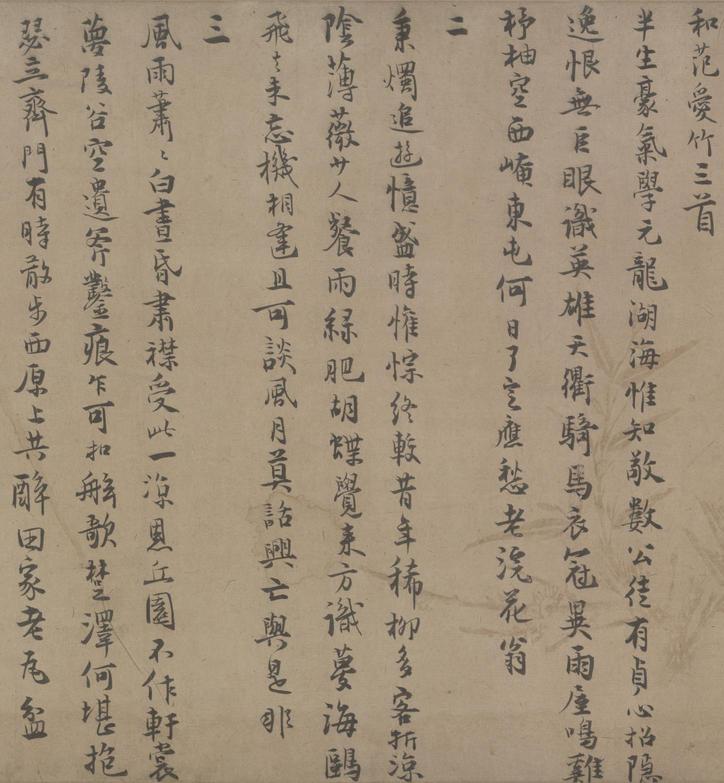 和范愛竹三首
半生豪氣學元龍湖海惟知敬數公徒有貞心招隱
逸恨無巨眼識英雄天衢騎馬衣冠異雨屋鳴雞
杼柚空西崦東屯何日了定應愁老浣花翁
二
秉燭追遊憶盛時惟悰終較昔年稀柳多客折涼
陰薄薇少人餐雨綠肥胡蝶覺來方識夢海鷗
飛去未忘機相逢且可談風月莫話興亡與是非
三
風雨蕭〻白晝昏肅襟受此一涼恩丘園不作軒裳
夢陵谷空遺斧鑿痕乍可扣觓歌楚澤何堪抱
瑟立齊門有時散步西原上共醉田家老瓦盆